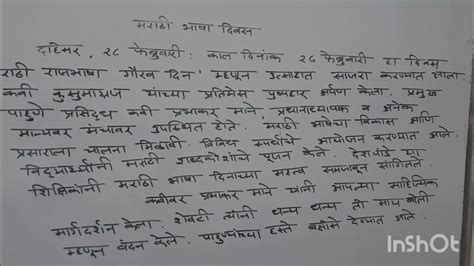 मराठी भाषा दिवस
दहिसर, २८ फेब्रुवारी : काल दिनांक २७ फेब्रुवारी हा दिवस
राठी राजभाषा गौरव दिन म्हणून उत्साहात साजरा करण्यात आला.
कवी कुसुमाग्रज यांच्या प्रतिमेस पुष्पहार अर्पण केला. प्रमुख
पाहुणे प्रसिद्ध कवी प्रभाकर माने, प्रधानाध्यापक व अनेक
मान्यवर मंचावर उपस्थित होते. मराठी भाषेचा विकास आणि
प्रसाराला चालना मिळावी. विविध स्पर्धांचे आयोजन करण्यात आले.
विद्यार्थ्यांनी मराठी शब्दकोशाचे पूजन केले. देशपांडे या
शिक्षिकांनी मराठी भाषा दिनाच्या महत्त्व समजावून सांगितले.
कवीवर प्रभाकर माने यांनी आपल्या साहित्यिक
मार्गदर्शन केला. शेवटी त्यांनी धन्य धन्य ती माय बोली
म्हणून वंदन केले. पाहुण्यांच्या हस्ते बक्षीसे देण्यात आले.
InShOt